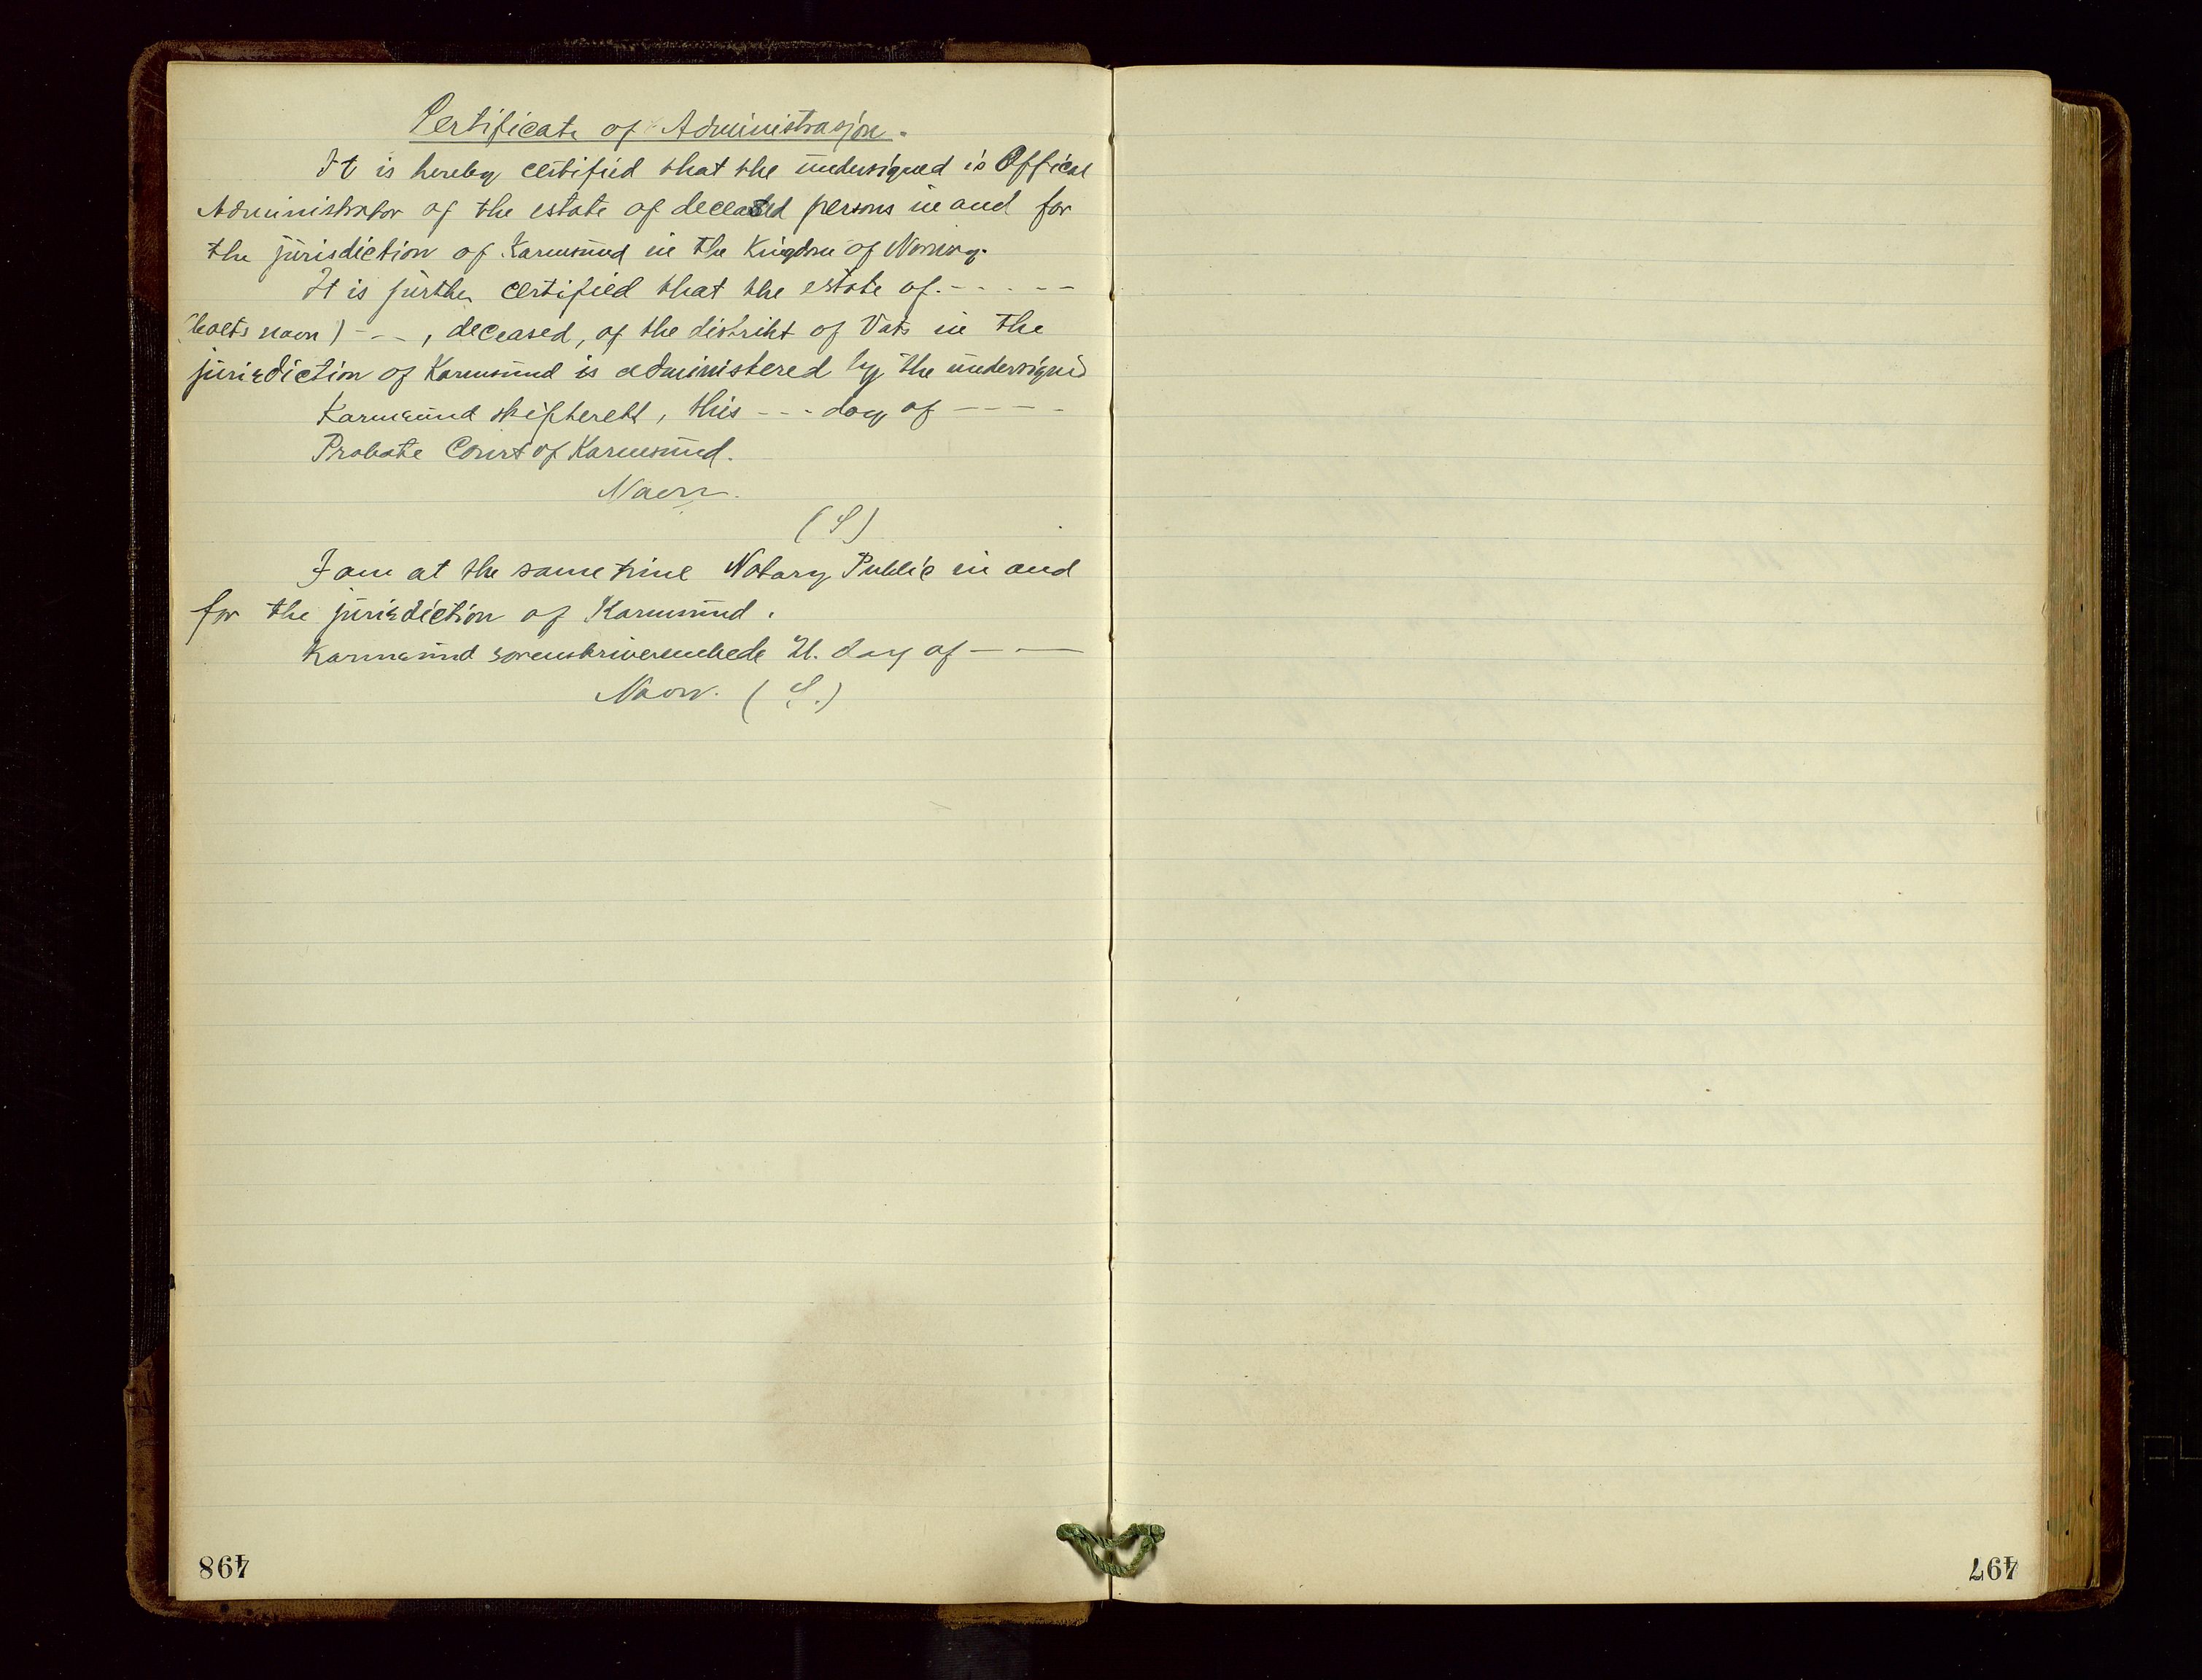 Certificate of Administrasjon.
It is hereby certified that the undersigned is Offical
Administrator of the estate of deceased persons in and for
the jurisdiction of Karmsund in the Kingdom of Norway.
It is further certified that the estate of. - - - - -
(boets navn) - - -, deceased, of the distrikt of Vats in the
jurisdiction of Karmsund is administered by the undersigned
Karmsund skifterett, this - - - day of - - - -
Probate Court of Karmsund.
Navn.
(S)
I am at the same time Notary Public in and
for the jurisdiction of Karmsund.
Karmsund sorenskriverembede 21. day of - - -
Navn. (S.)
498
497